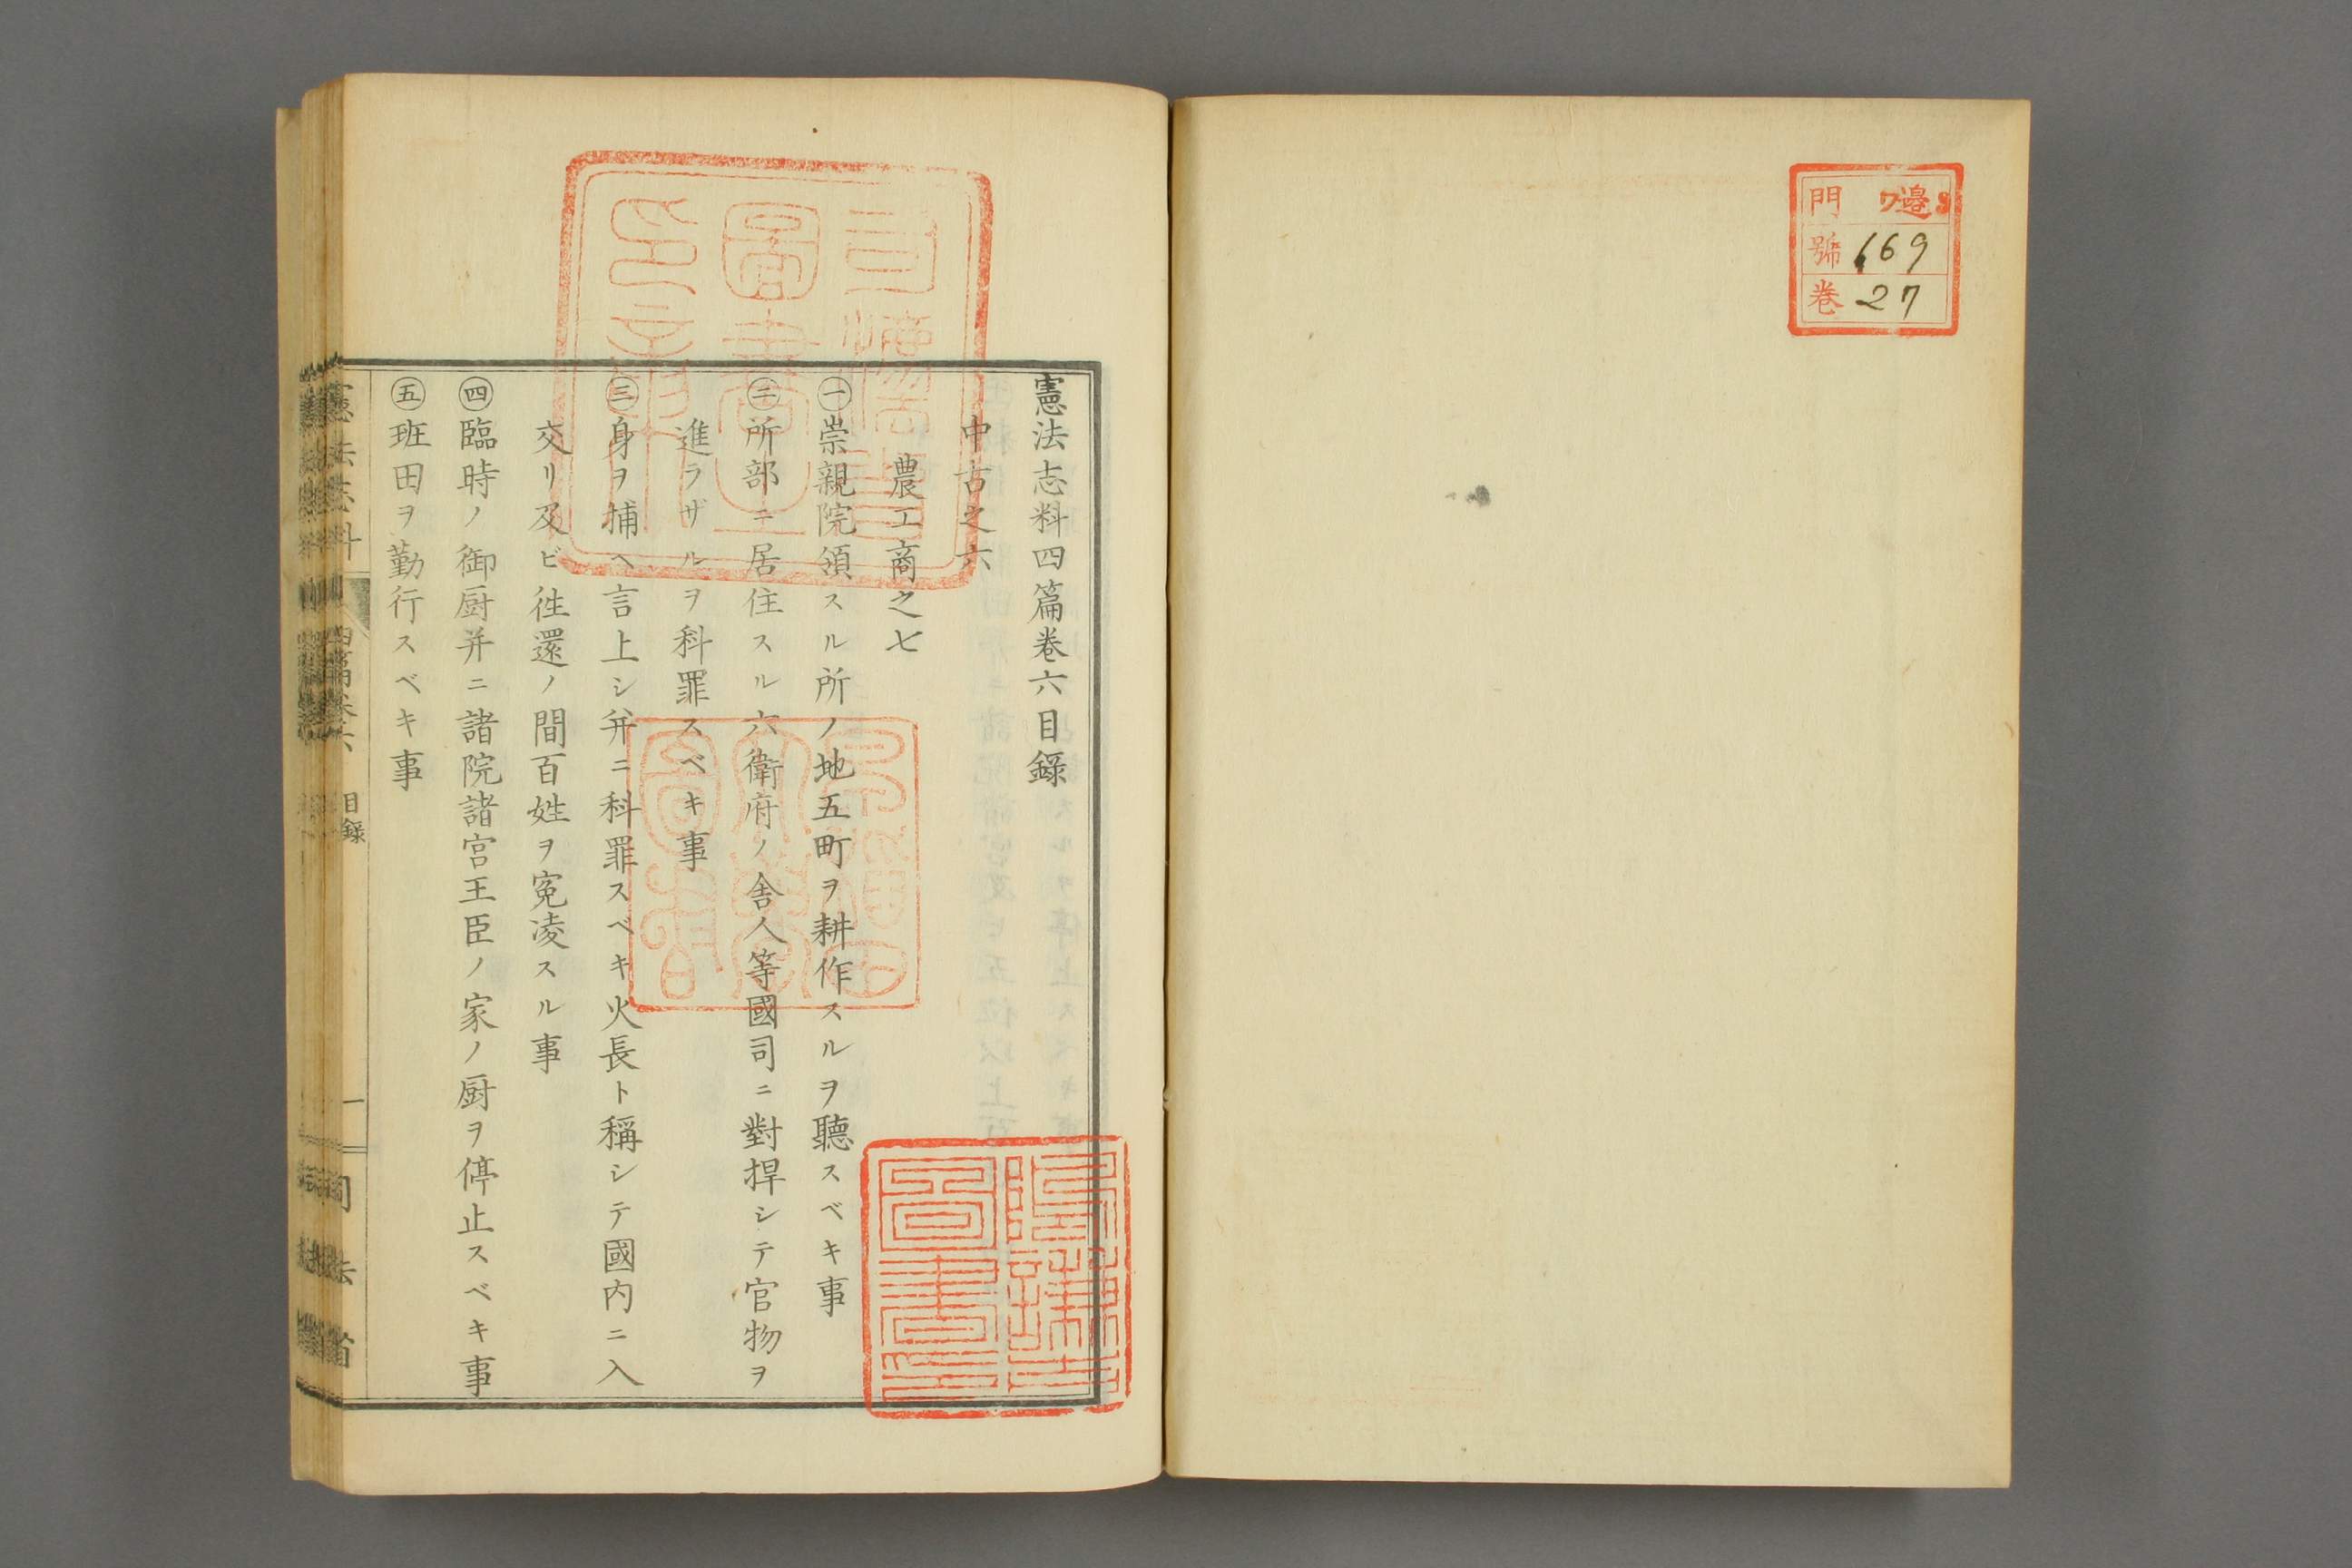 門 ワ邉
號 169
卷 27
憲法志料四篇卷六目錄
中古之六
農工商之七
㊀崇親院領スル所ノ地五町ヲ耕作スルヲ聽スベキ事
㊁所部ニ居住スル六衛府ノ舎人等國司ニ對捍シテ官物ヲ
進ラザルヲ科罪スベキ事
㊂身ヲ捕ヘ言上シ幷ニ科罪スベキ火長ト稱シテ國内ニ入
交リ及ビ徃還ノ間百姓ヲ寃凌スル事
㊃臨時ノ御厨并ニ諸院諸宮王臣ノ家ノ厨ヲ停止スベキ事
㊄班田ヲ勤行スベキ事
憲法志料 四篇卷六 目錄 一 司法省